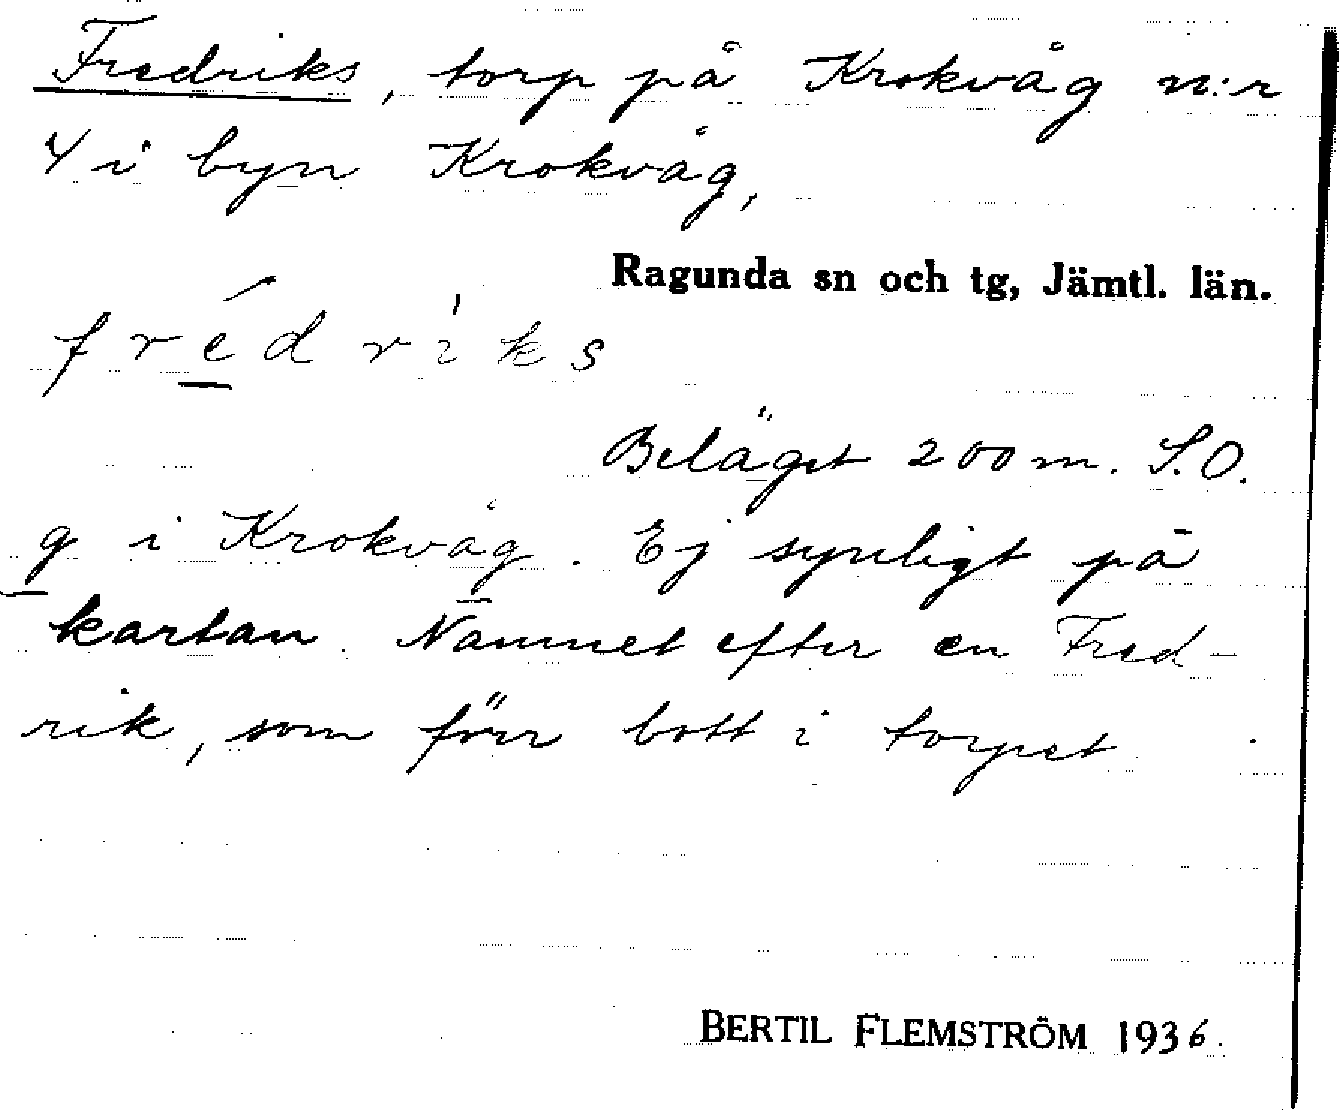 Fredriks, torp på Krokvåg n:r
4 i byn Krokvåg,
Ragunda sn och tg, Jämtl. län.
frédriks
Beläget 200 m. S.O.
g i Krokvåg. Ej synligt på
kartan. Namnet efter en Fred-
rik, som förr bott i torpet.
BERTIL FLEMSTRÖM 1936.